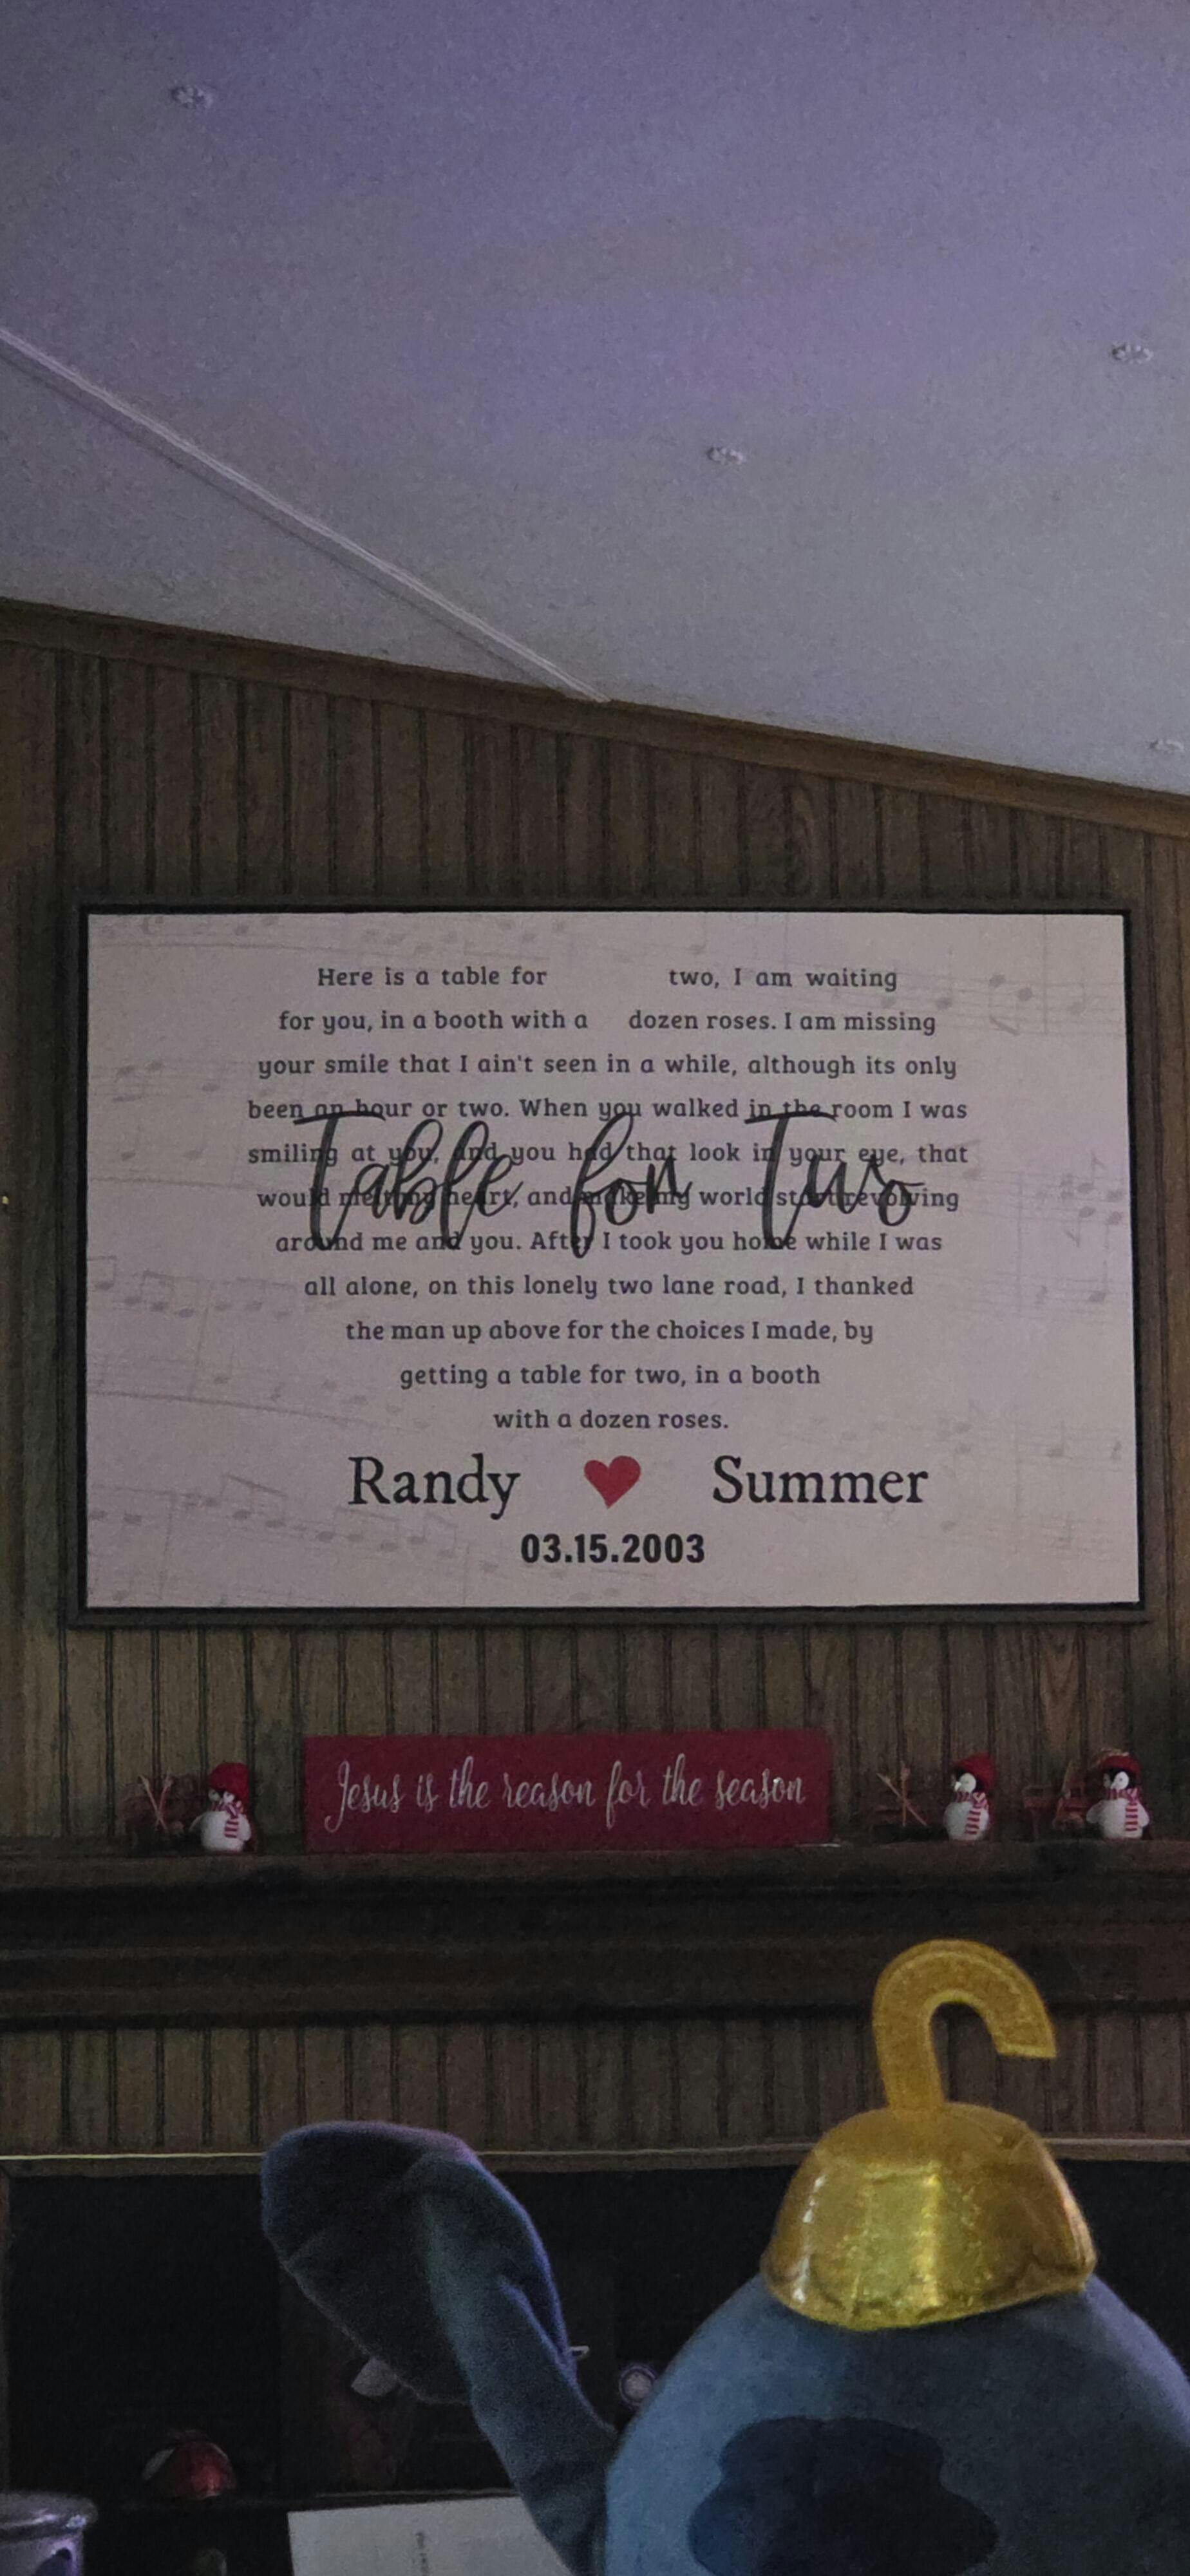 Here is a table for two, I am waiting
for you, in a booth with a dozen roses. I am missing
your smile that I ain't seen in a while, although its only
been an hour or two. When you walked in the room I was
Table for Two
smiling at you, and you had that look in your eye, that
would melt my heart, and make my world start revolving
around me and you. After I took you home while I was
all alone, on this lonely two lane road, I thanked
the man up above for the choices I made, by
getting a table for two, in a booth
with a dozen roses.
Randy Summer
03.15.2003
Jesus is the reason for the season